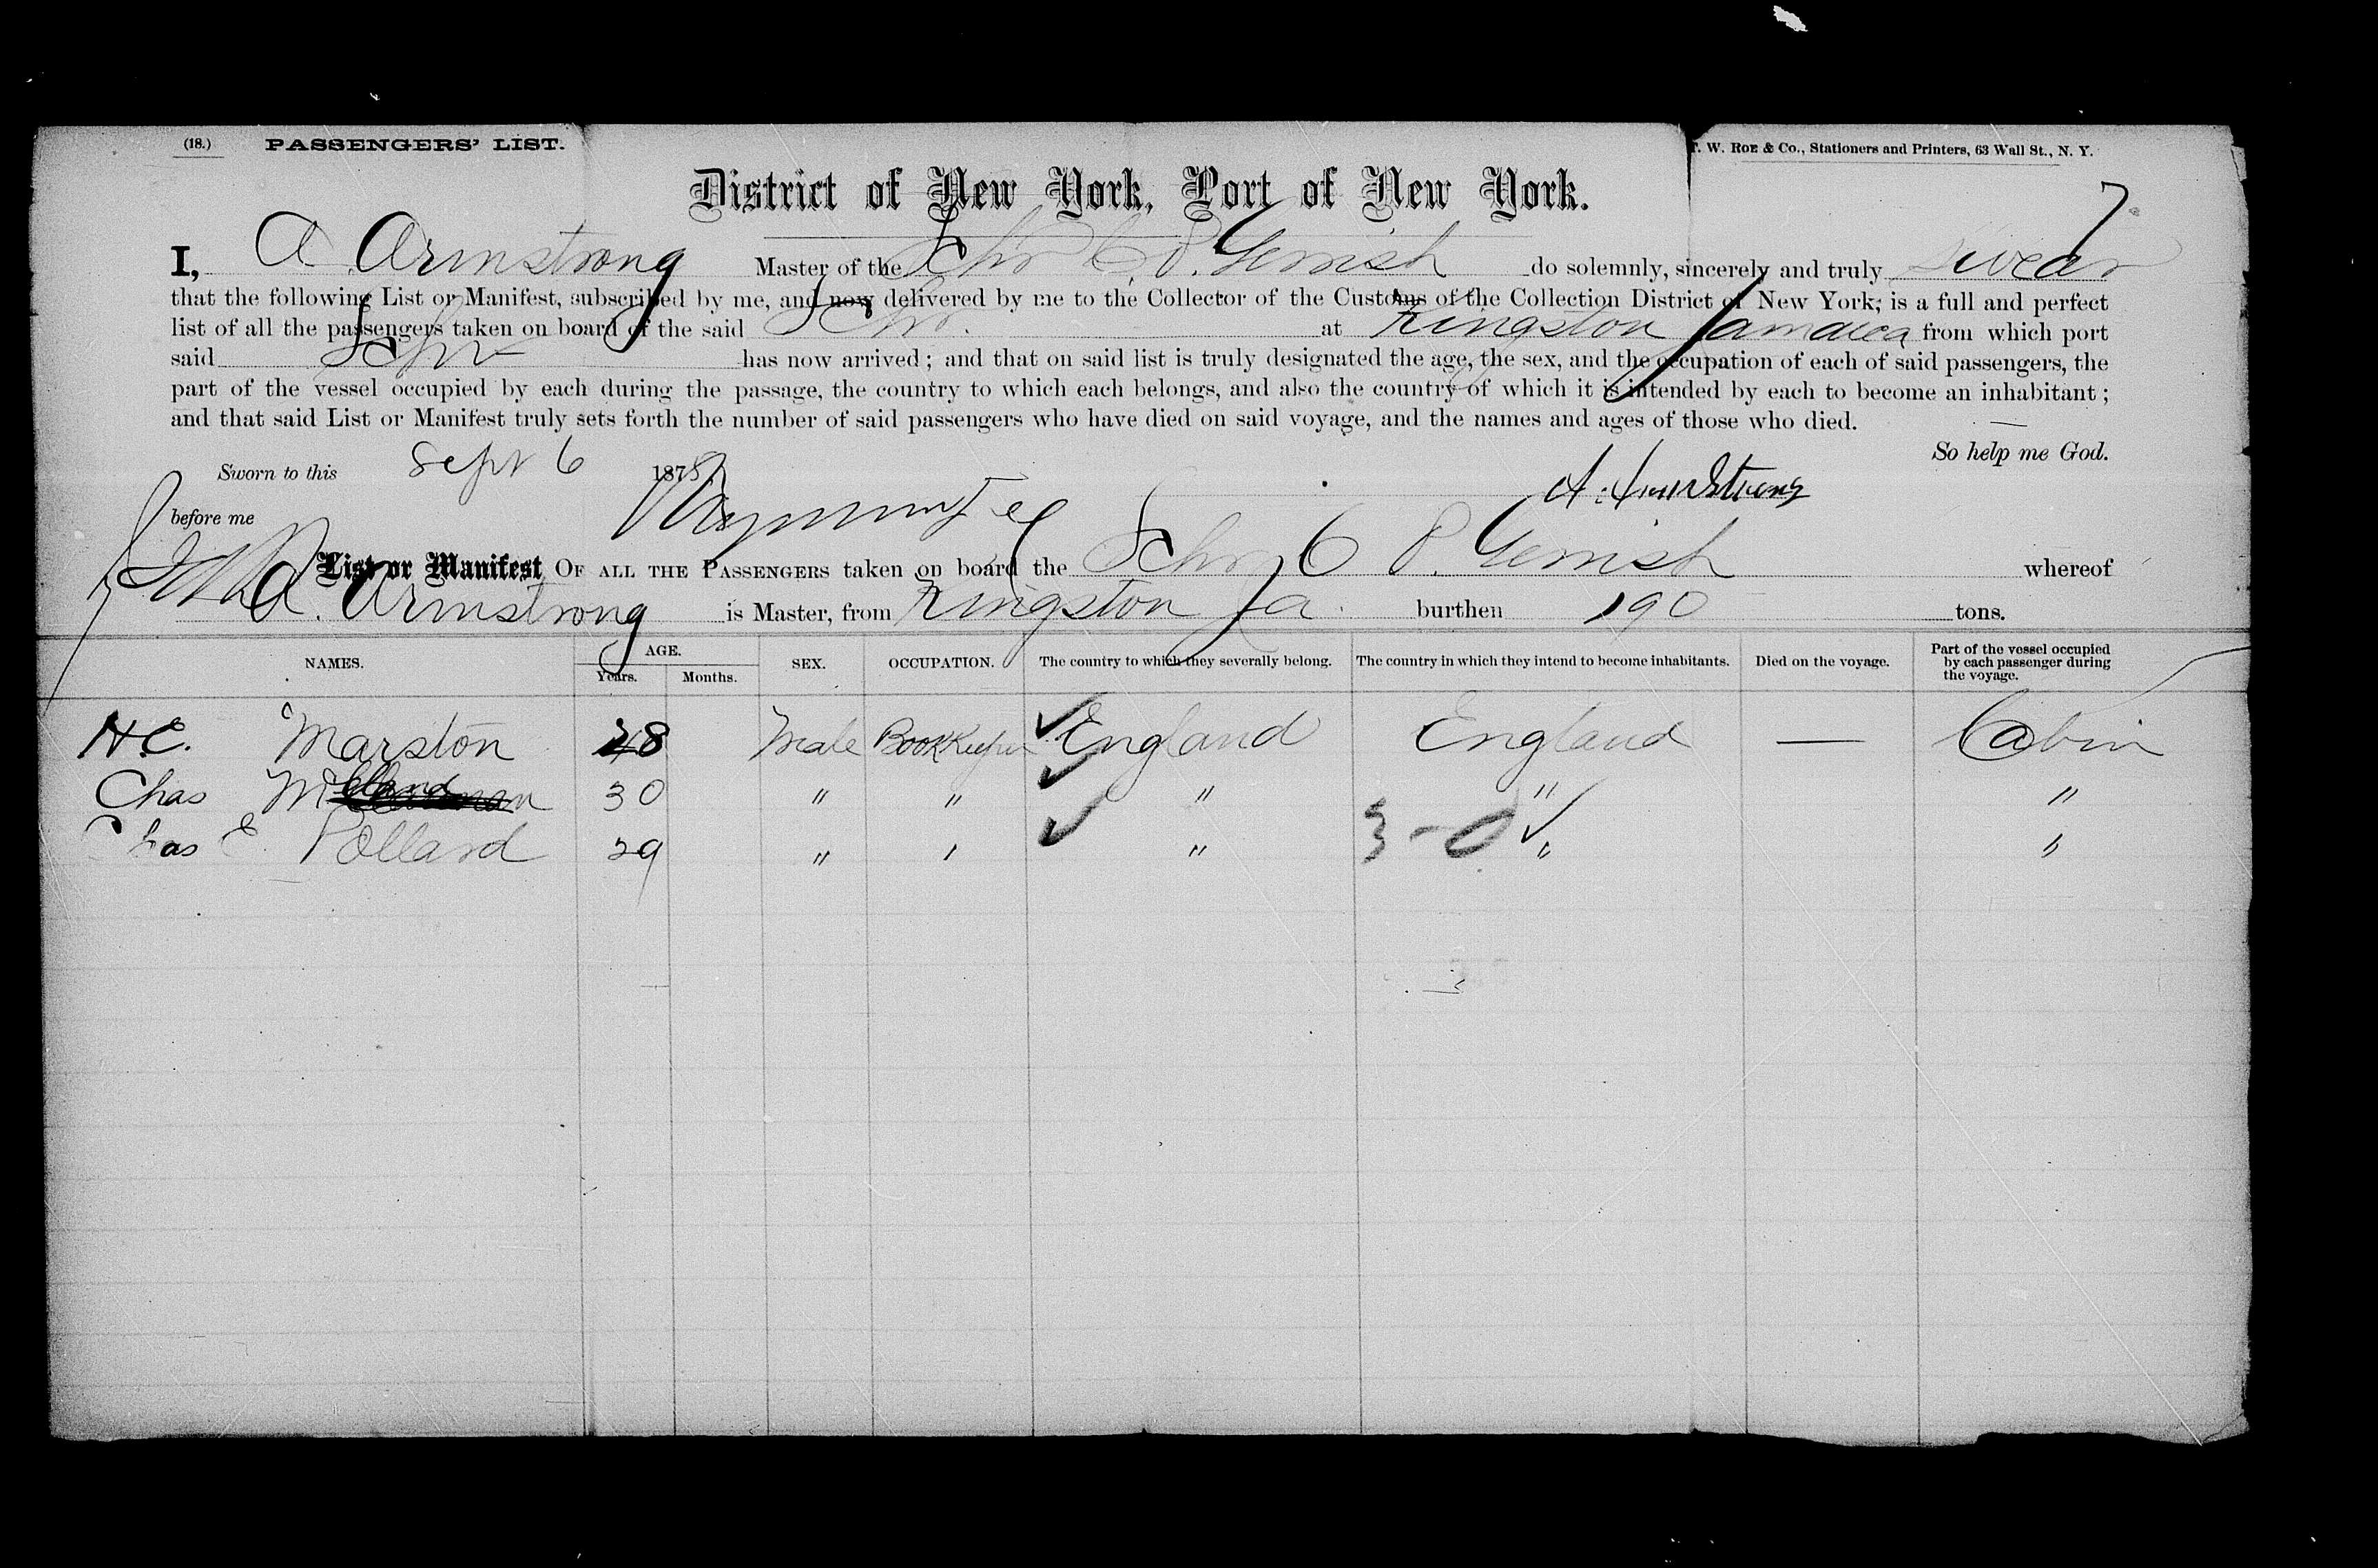 (18.) PASSENGERS' LIST. T. W. ROE & Co., Stationers and Printers, 63 Wall St., N. Y.
District of New York, Port of New York.
I, A Armstrong Master of the Schr C. P. Gerrish do solemnly, sincerely and truly swear
that the following List or Manifest, subscribed by me, and now delivered by me to the Collector of the Customs of the Collection District of New York; is a full and perfect
list of all the passengers taken on board of the said Schr. at Kingston Jamaica from which port
said Schr has now arrived; and that on said list is truly designated the age, the sex, and the occupation of each of said passengers, the
part of the vessel occupied by each during the passage, the country to which each belongs, and also the country of which it is intended by each to become an inhabitant;
and that said List or Manifest truly sets forth the number of said passengers who have died on said voyage, and the names and ages of those who died.
So help me God.
Sworn to this Sept 6 1878 A. Armstrong
before me
List or Manifest OF ALL THE PASSENGERS taken on board the Schr C P. Gerrish whereof
A. Armstrong is Master, from Kingston Ja. burthen 190 tons.
NAMES. AGE. Years. Months. SEX. OCCUPATION. The country to which they severally belong. The country in which they intend to become inhabitants. Died on the voyage. Part of the vessel occupied by each passenger during the voyage.
H C. Marston 28 Male BookKeeper England England — Cabin
Chas 30 " " " " "
Chas E. Pollard 29 " " " 3-0 " "